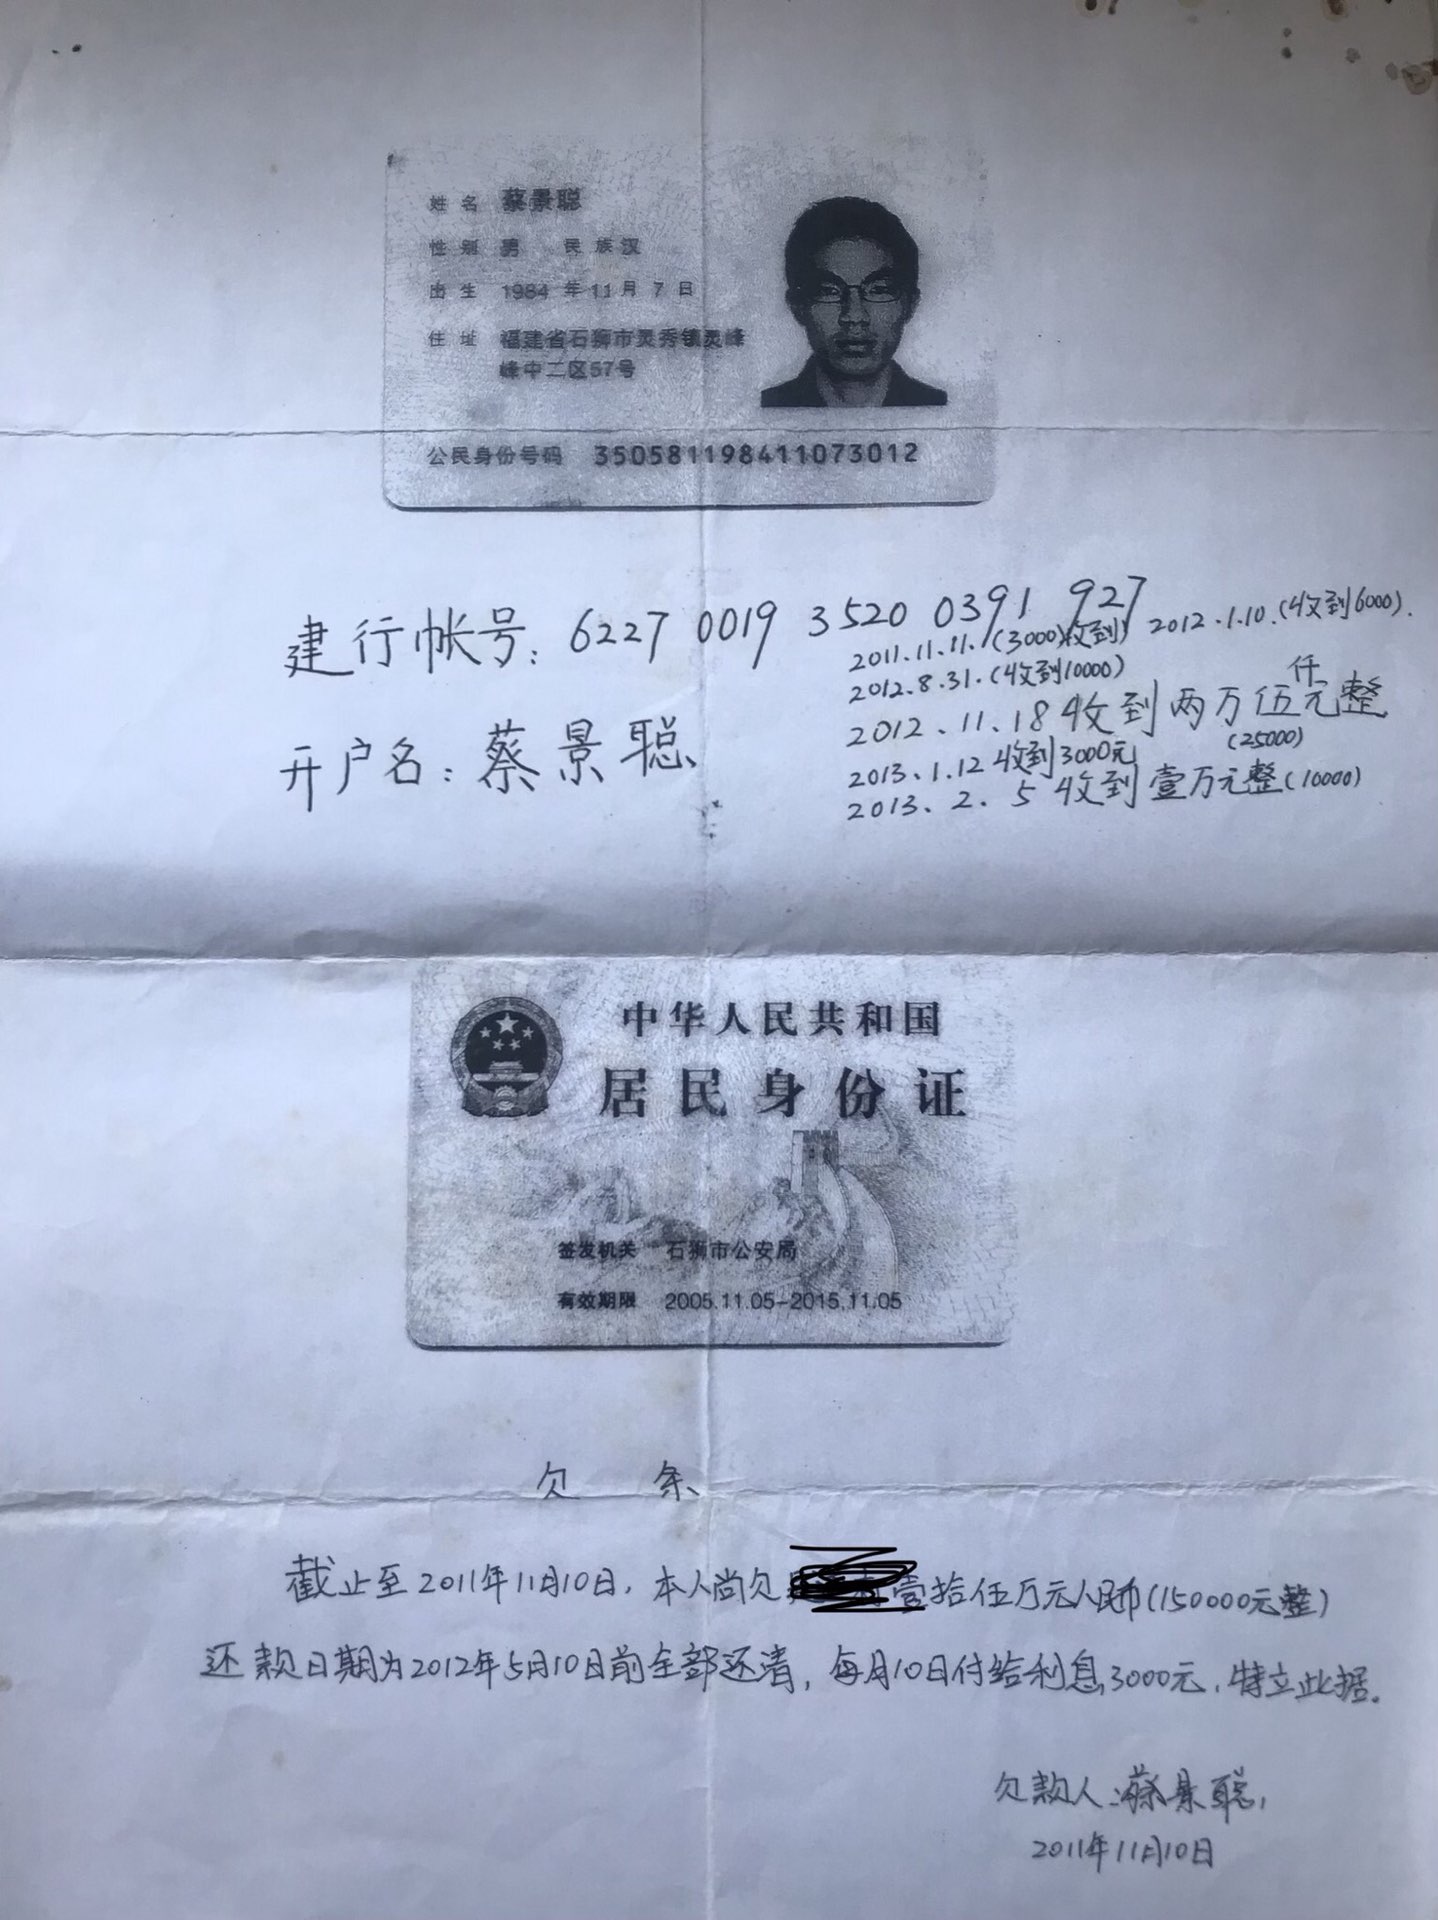 姓名 蔡景聪
性别 男 民族 汉
出生 1984年11月7日
住址 福建省石狮市灵秀镇灵峰
峰中二区57号
公民身份号码 350581198411073012
建行帐号：6227 0019 3520 0391 927
2011.11.11.(3000)收到) 2012.1.10.(收到6000).
2012.8.31.(收到10000)
开户名：蔡景聪
2012.11.18收到两万伍仟元整
(25000)
2013.1.12收到3000元
2013.2.5收到壹万元整(10000)
中华人民共和国
居民身份证
签发机关 石狮市公安局
有效期限 2005.11.05-2015.11.05
欠条
截止至2011年11月10日，本人尚欠 壹拾伍万元人民币(150000元整)
还款日期为2012年5月10日前全部还清，每月10日付给利息3000元，特立此据。
欠款人：蔡景聪
2011年11月10日